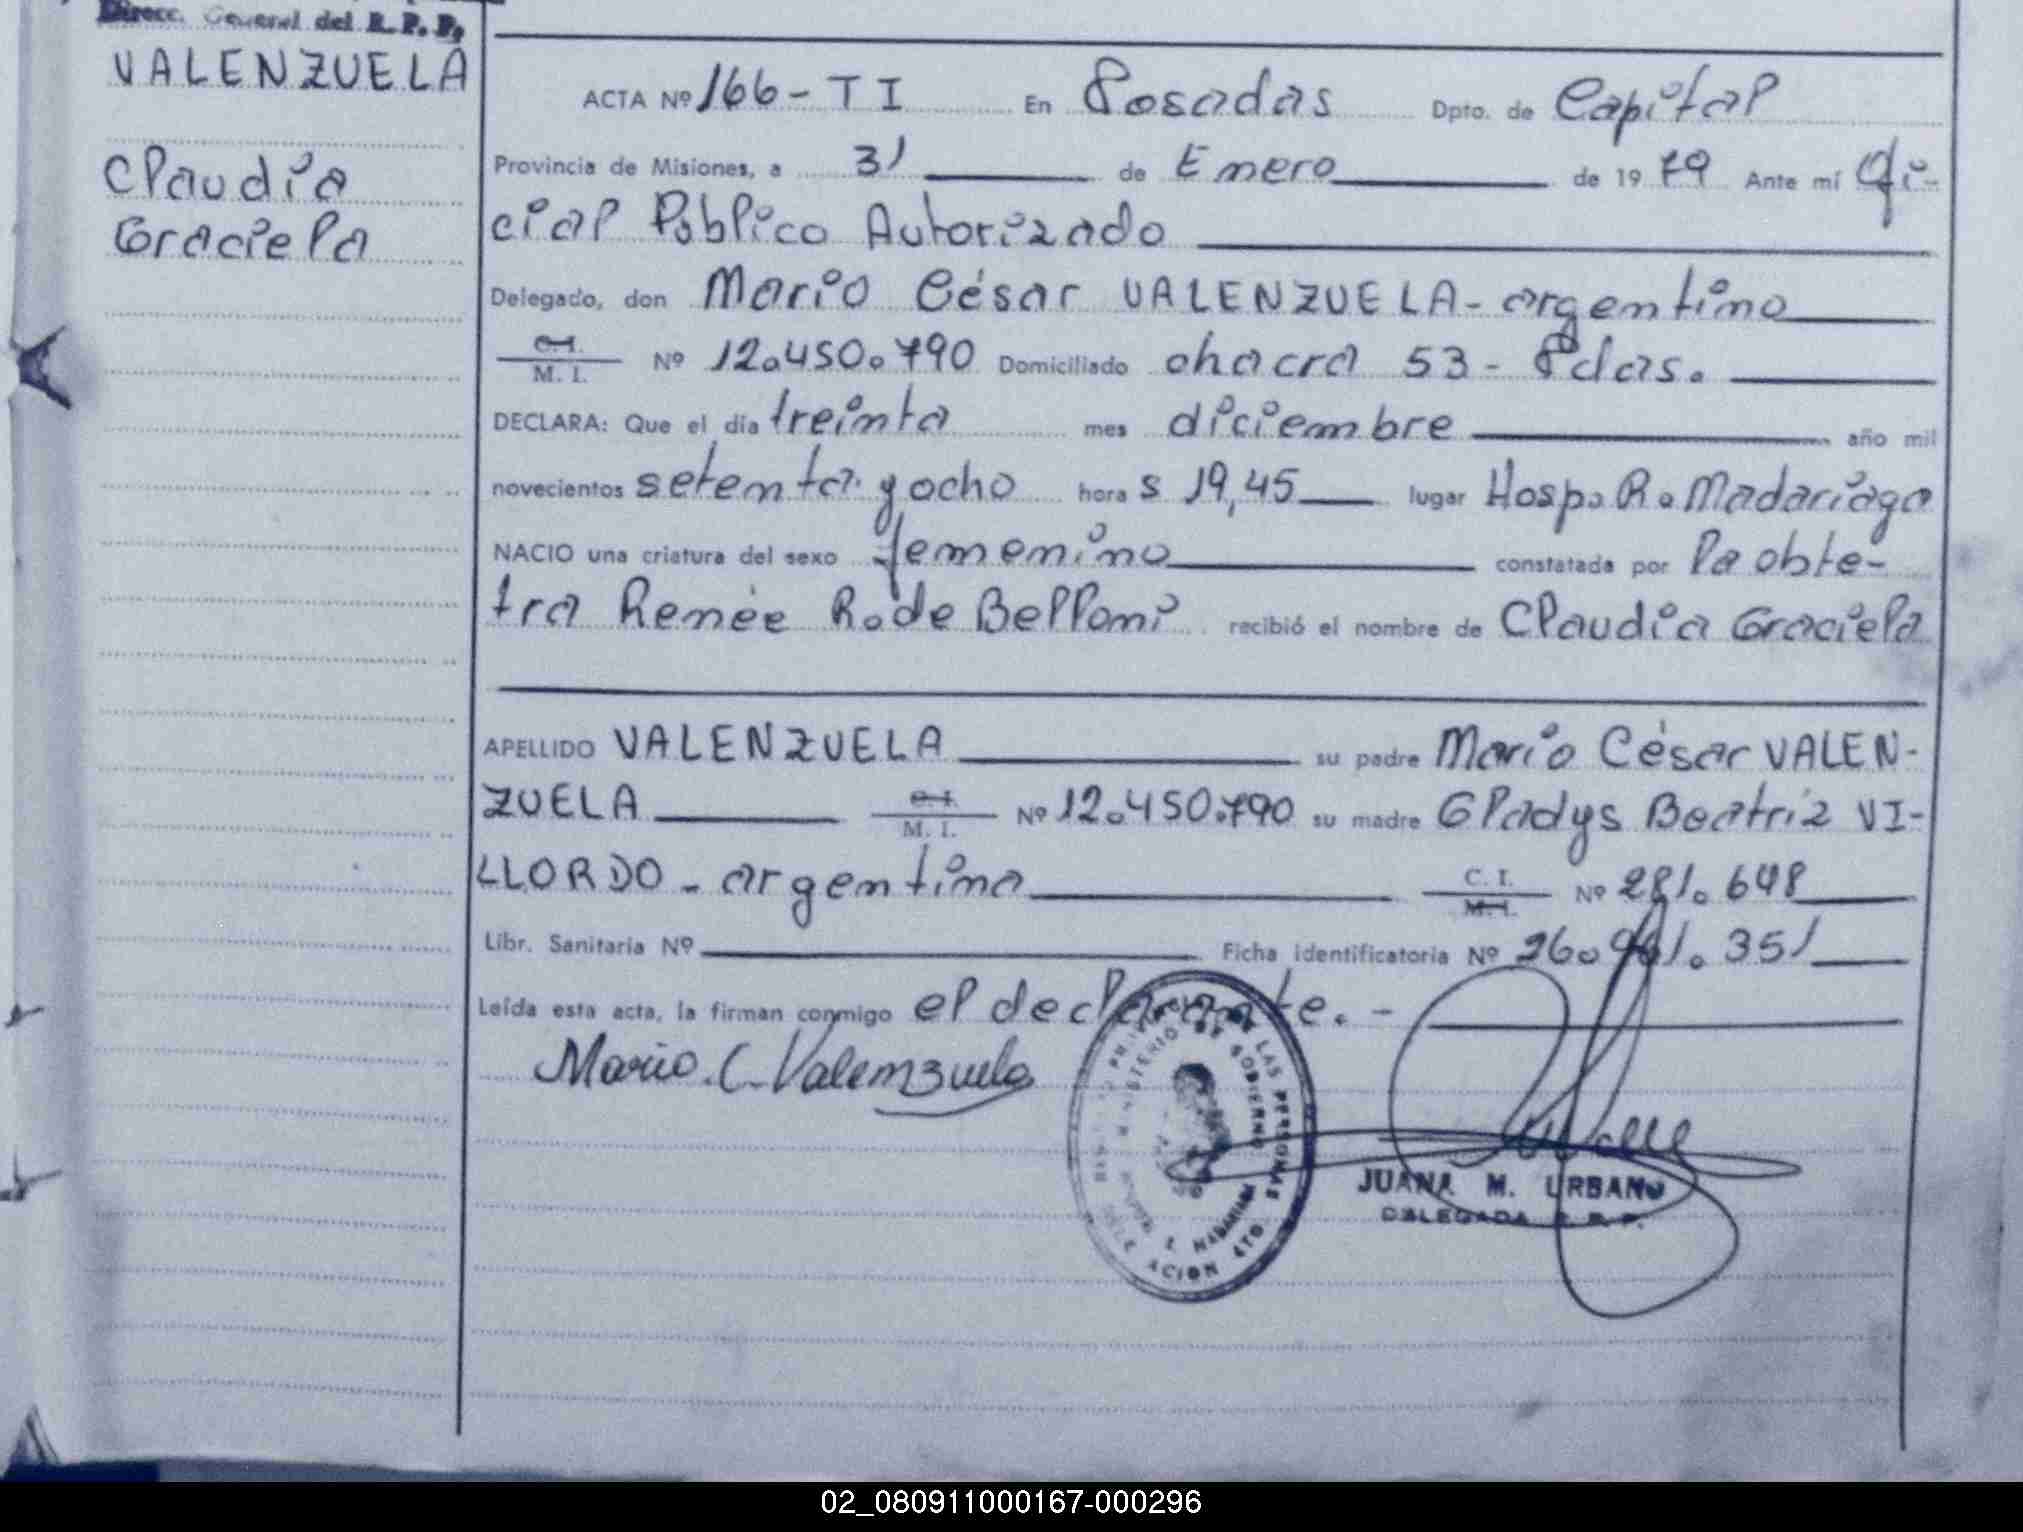 Direcc. General del R. P. P.
VALENZUELA
Claudia
Graciela
ACTA Nº 166 - T I En Posadas Dpto. de Capital
Provincia de Misiones, a 31 de Enero de 1979 Ante mí Ofi-
cial Público Autorizado
Delegado, don Mario César VALENZUELA - argentino
C.I. M. I. Nº 12.450.790 Domiciliado chacra 53 - Pdas.
DECLARA: Que el día treinta mes diciembre año mil
novecientos setenta y ocho hora s 19,45 lugar Hosp. R. Madariaga
NACIO una criatura del sexo femenino constatada por la obte-
tra Renée R. de Belloni recibió el nombre de Claudia Graciela
APELLIDO VALENZUELA su padre Mario César VALEN-
ZUELA C.I. M. I. Nº 12.450.790 su madre Gladys Beatriz VI-
LLORDO - argentina C. I. M. I. Nº 281.648
Libr. Sanitaria Nº Ficha identificatoria Nº 26.961.351
Leída esta acta, la firman conmigo el declarante. -
Mario. C. Valenzuela
MINISTERIO DE GOBIERNO
DE LAS PERSONAS
R. MADARIAGA
JUANA M. URBANO
DELEGADA R. P. P.
02_080911000167-000296